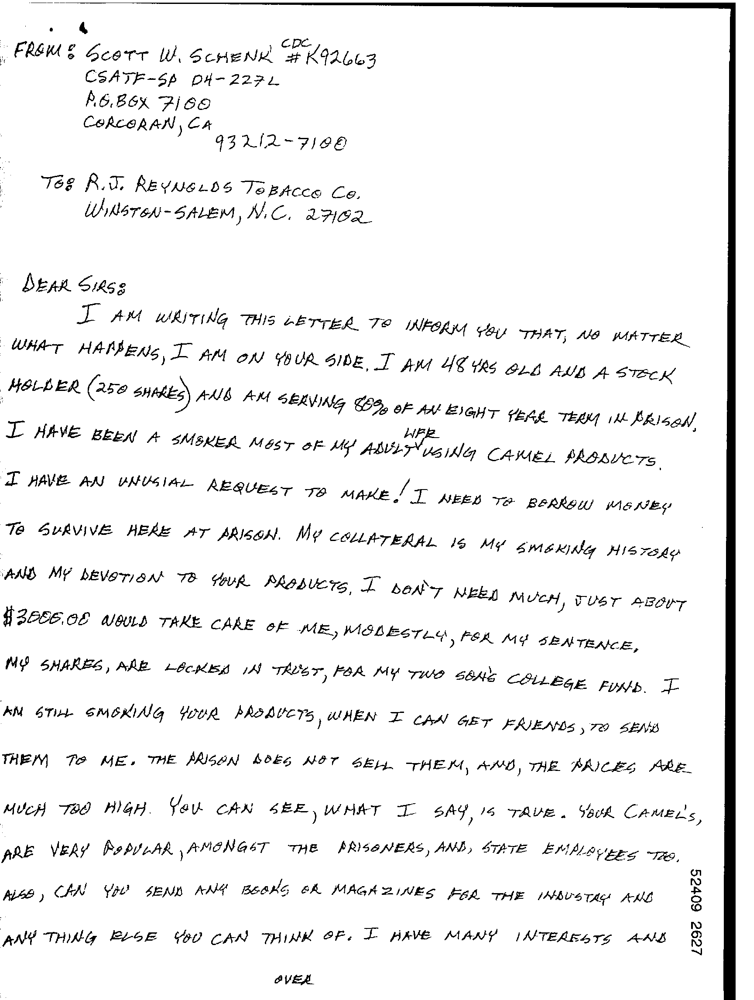 FROM: SCOTT W. SCHENK CDC #K92663
CSATF-SP D4-227L
P.O. BOX 7100
CORCORAN, CA
93212-7100
TO: R.J. REYNOLDS TOBACCO CO.
WINSTON-SALEM, N.C. 27102
DEAR SIRS:
I AM WRITING THIS LETTER TO INFORM YOU THAT, NO MATTER
WHAT HAPPENS, I AM ON YOUR SIDE. I AM 48 YRS OLD AND A STOCK
HOLDER (250 SHARES) AND AM SERVING 80% OF AN EIGHT YEAR TERM IN PRISON.
I HAVE BEEN A SMOKER MOST OF MY ADULT LIFE USING CAMEL PRODUCTS.
I HAVE AN UNUSIAL REQUEST TO MAKE! I NEED TO BORROW MONEY
TO SURVIVE HERE AT PRISON. MY COLLATERAL IS MY SMOKING HISTORY
AND MY DEVOTION TO YOUR PRODUCTS. I DON'T NEED MUCH, JUST ABOUT
$3000.00 WOULD TAKE CARE OF ME, MODESTLY, FOR MY SENTENCE.
MY SHARES, ARE LOCKED IN TRUST, FOR MY TWO SON'S COLLEGE FUND. I
AM STILL SMOKING YOUR PRODUCTS, WHEN I CAN GET FRIENDS, TO SEND
THEM TO ME. THE PRISON DOES NOT SELL THEM, AND, THE PRICES ARE
MUCH TOO HIGH. YOU CAN SEE, WHAT I SAY, IS TRUE. YOUR CAMEL'S,
ARE VERY POPULAR, AMONGST THE PRISONERS, AND, STATE EMPLOYEES TOO.
ALSO, CAN YOU SEND ANY BOOKS OR MAGAZINES FOR THE INDUSTRY AND
ANY THING ELSE YOU CAN THINK OF. I HAVE MANY INTERESTS AND
OVER
52409 2627